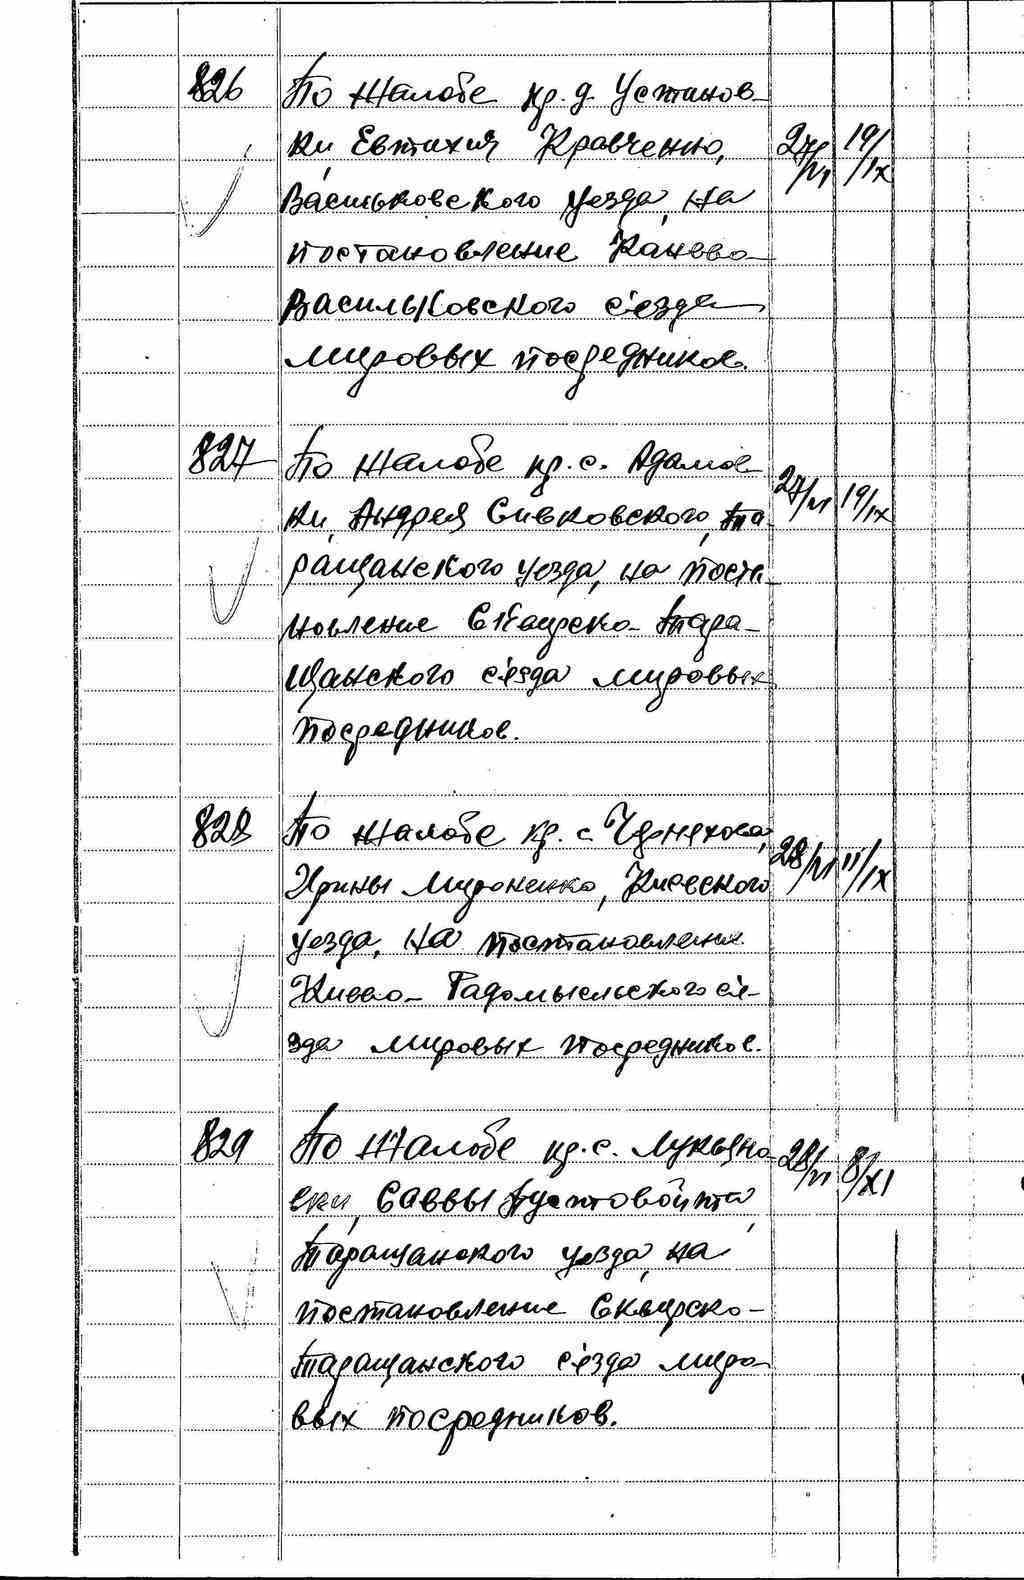 826 По жалобе кр. д. Устинов-
ки, Евтихия Кравченко, 27/VI 19/IX
Васильковского уезда, на
постановление Канево-
Васильковского съезда
мировых посредников.
827 По жалобе кр. с. Адамов-
ки, Андрея Сивковского, Та- 27/VI 19/IX
ращанского уезда, на поста-
новление Сквирско-Тара-
щанского съезда мировых
посредников.
828 По жалобе кр. с. Черняхова,
Ирины Мироненко, Киевского 28/VI 11/IX
уезда, на постановление
Киево-Радомысльского съе-
зда мировых посредников.
829 По жалобе кр. с. Лукьяно- 28/VI 8/XI
вки, Саввы Пустовойта,
Таращанского уезда, на
постановление Сквирско-
Таращанского съезда миро-
вых посредников.